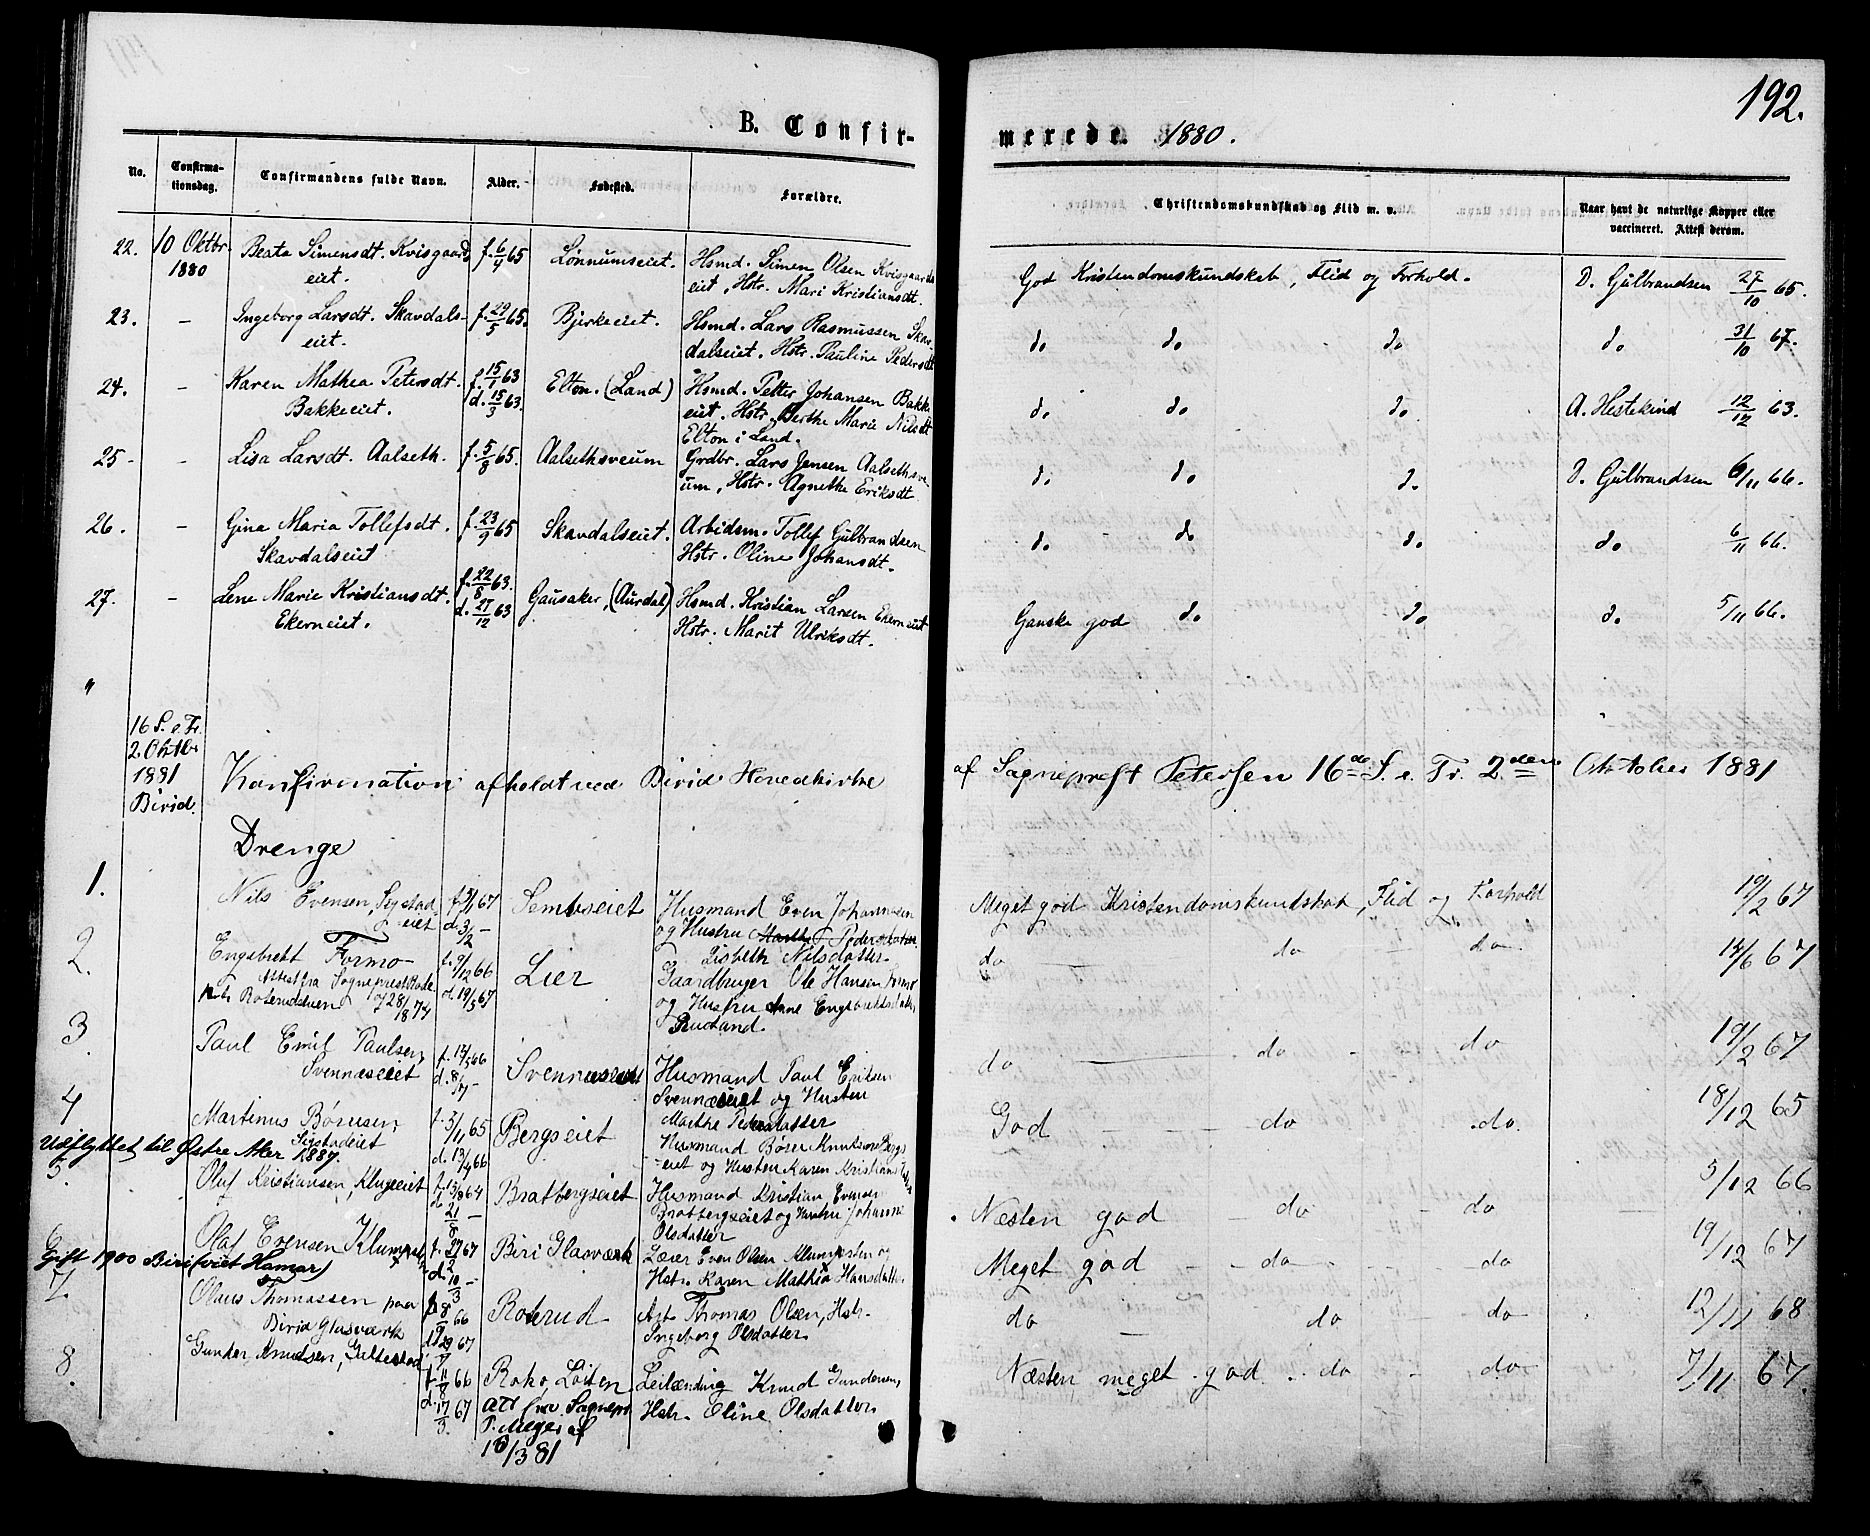 192.
B. Confir-
merede. 1880.
No.
Confirma-
tionsdag.
Confirmandens fulde Navn.
Alder.
Fødested.
Forældre.
Christendomskundskab og Flid m. v.
Naar havt de naturlige Kopper eller
vaccineret. Attest derom.
22. 10 Oktbr. Beata Simensdt. Kvisgaards f. 6/4 65 Lønnumseiet. Hsmd. Simen Olsen Kvisgaards God Kristendomskundskab, Flid og Forhold. D. Gulbrandsen 27/10 65.
1880 eiet. eiet, Hstr. Mari Kristiansdt.
23. - Ingeborg Larsdt. Skavdals- f. 29/5 65. Bjerkeeiet. Hsmd. Lars Rasmussen Skav- do do do do 31/10 67.
eiet. dalseiet. Hstr. Pauline Pedersdt
24. - Karen Mathea Petersdt. f. 15/1 63 Elton. (Land) Hsmd. Petter Johansen Bakke do do do A. Hestekind 12/12 63.
Bakkeeiet. d. 15/3 63. eiet. Hstr. Berthe Marie Nilsdt
Elton i Land.
25 - - Lisa Larsdt. Aalseth. f. 5/8 65. Aalsethsveum Grdbr. Lars Jensen Aalsethsve- do do do D. Gulbrandsen 6/11 66.
um, Hstr. Agnethe Eriksdt
26. - Gina Maria Tollefsdt. f. 23/9 65 Skavdalseiet. Arbidsm. Tollef Gulbrandsen do do do do 6/11 66.
Skavdalseiet Hstr. Oline Johansdt.
27. - Lene Marie Kristiansdt. f. 22/8 63. Gausaker, (Aurdal) Hsmd. Kristian Larsen Ekerneiet Ganske god do do do 5/11 66.
Ekerneiet. d. 27/12 63 Hstr. Marit Ulriksdt.
"
16 S. e. Tr.
2 Oktbr
1881
Birid.
Konfirmation afholdt ved Birid Hovedkirke af Sognepræst Petersen 16de S. e. Tr. 2den Oktober 1881
Drenge
1. Nils Evensen, Sigstad f. 5/1 67 Sembseiet Husmand Even Johannesen Meget god Kristendomskundskab, Flid og Forhold 19/2 67
eiet d. 3/2 - og Hustru Marthe Pedersdatter.
Lisbeth Nilsdatter
2. Engebrett Formo f. 9/12 66 Lier Gaardbruger Ole Hansen Formo do do do 14/6 67
Attest fra Sogneprest d. 19/5 67 og Hustru Anne Engebrettsdatter
af 28/8 74 Rustand.
3. Paul Emil Paulsen f. 12/5 66 Svennæseiet Husmand Paul Eriksen do do do 19/2 67
Svennæseiet d. 8/7 - Svennæseiet og Hustru
Marthe Pedersdatter
4 Martinus Børresen, f. 3/11 65 Bergseiet Husmand Børre Knudsen Bergs God do do 18/12 65
Sigstadeiet d. 13/4 66 -eiet og Hustru Karen Kristiansdatter
Udflyttet til Østre Aker 1887.
5. Oluf Kristiansen, Klugeeiet f. 13/8 64 Bratbergseiet Husmand Kristian Evensen Næsten god do do 5/12 66
d. 21/8 - Bratbergseiet og Hustru Johanne
Olsdatter
6 Olaf Evensen Klumpsten f. 27/2 67 Biri Glasværk Læser Even Olsen Klumpsten og Meget god do do 19/12 67
d. 10/3 - Hstr. Karen Mathia Hansdatter
Gift 1900 Biri (viet Hamar)
7. Olaus Thomassen paa f. 8/9 66 Roterud Arb. Thomas Olsen, Hstr. do do do 12/11 68
Birid Glasværk 29 67 Ingeborg Olsdatter
8. Gunder Knudsen, f. 11/8 66 Roko, Løiten Leilænding Knud Gundersen, Næsten meget god do do 7/11 67.
d. 17/3. 67 Att fra Sognepr. Hstr. Eline Olsdatter
P. Meyer af
18/3 81